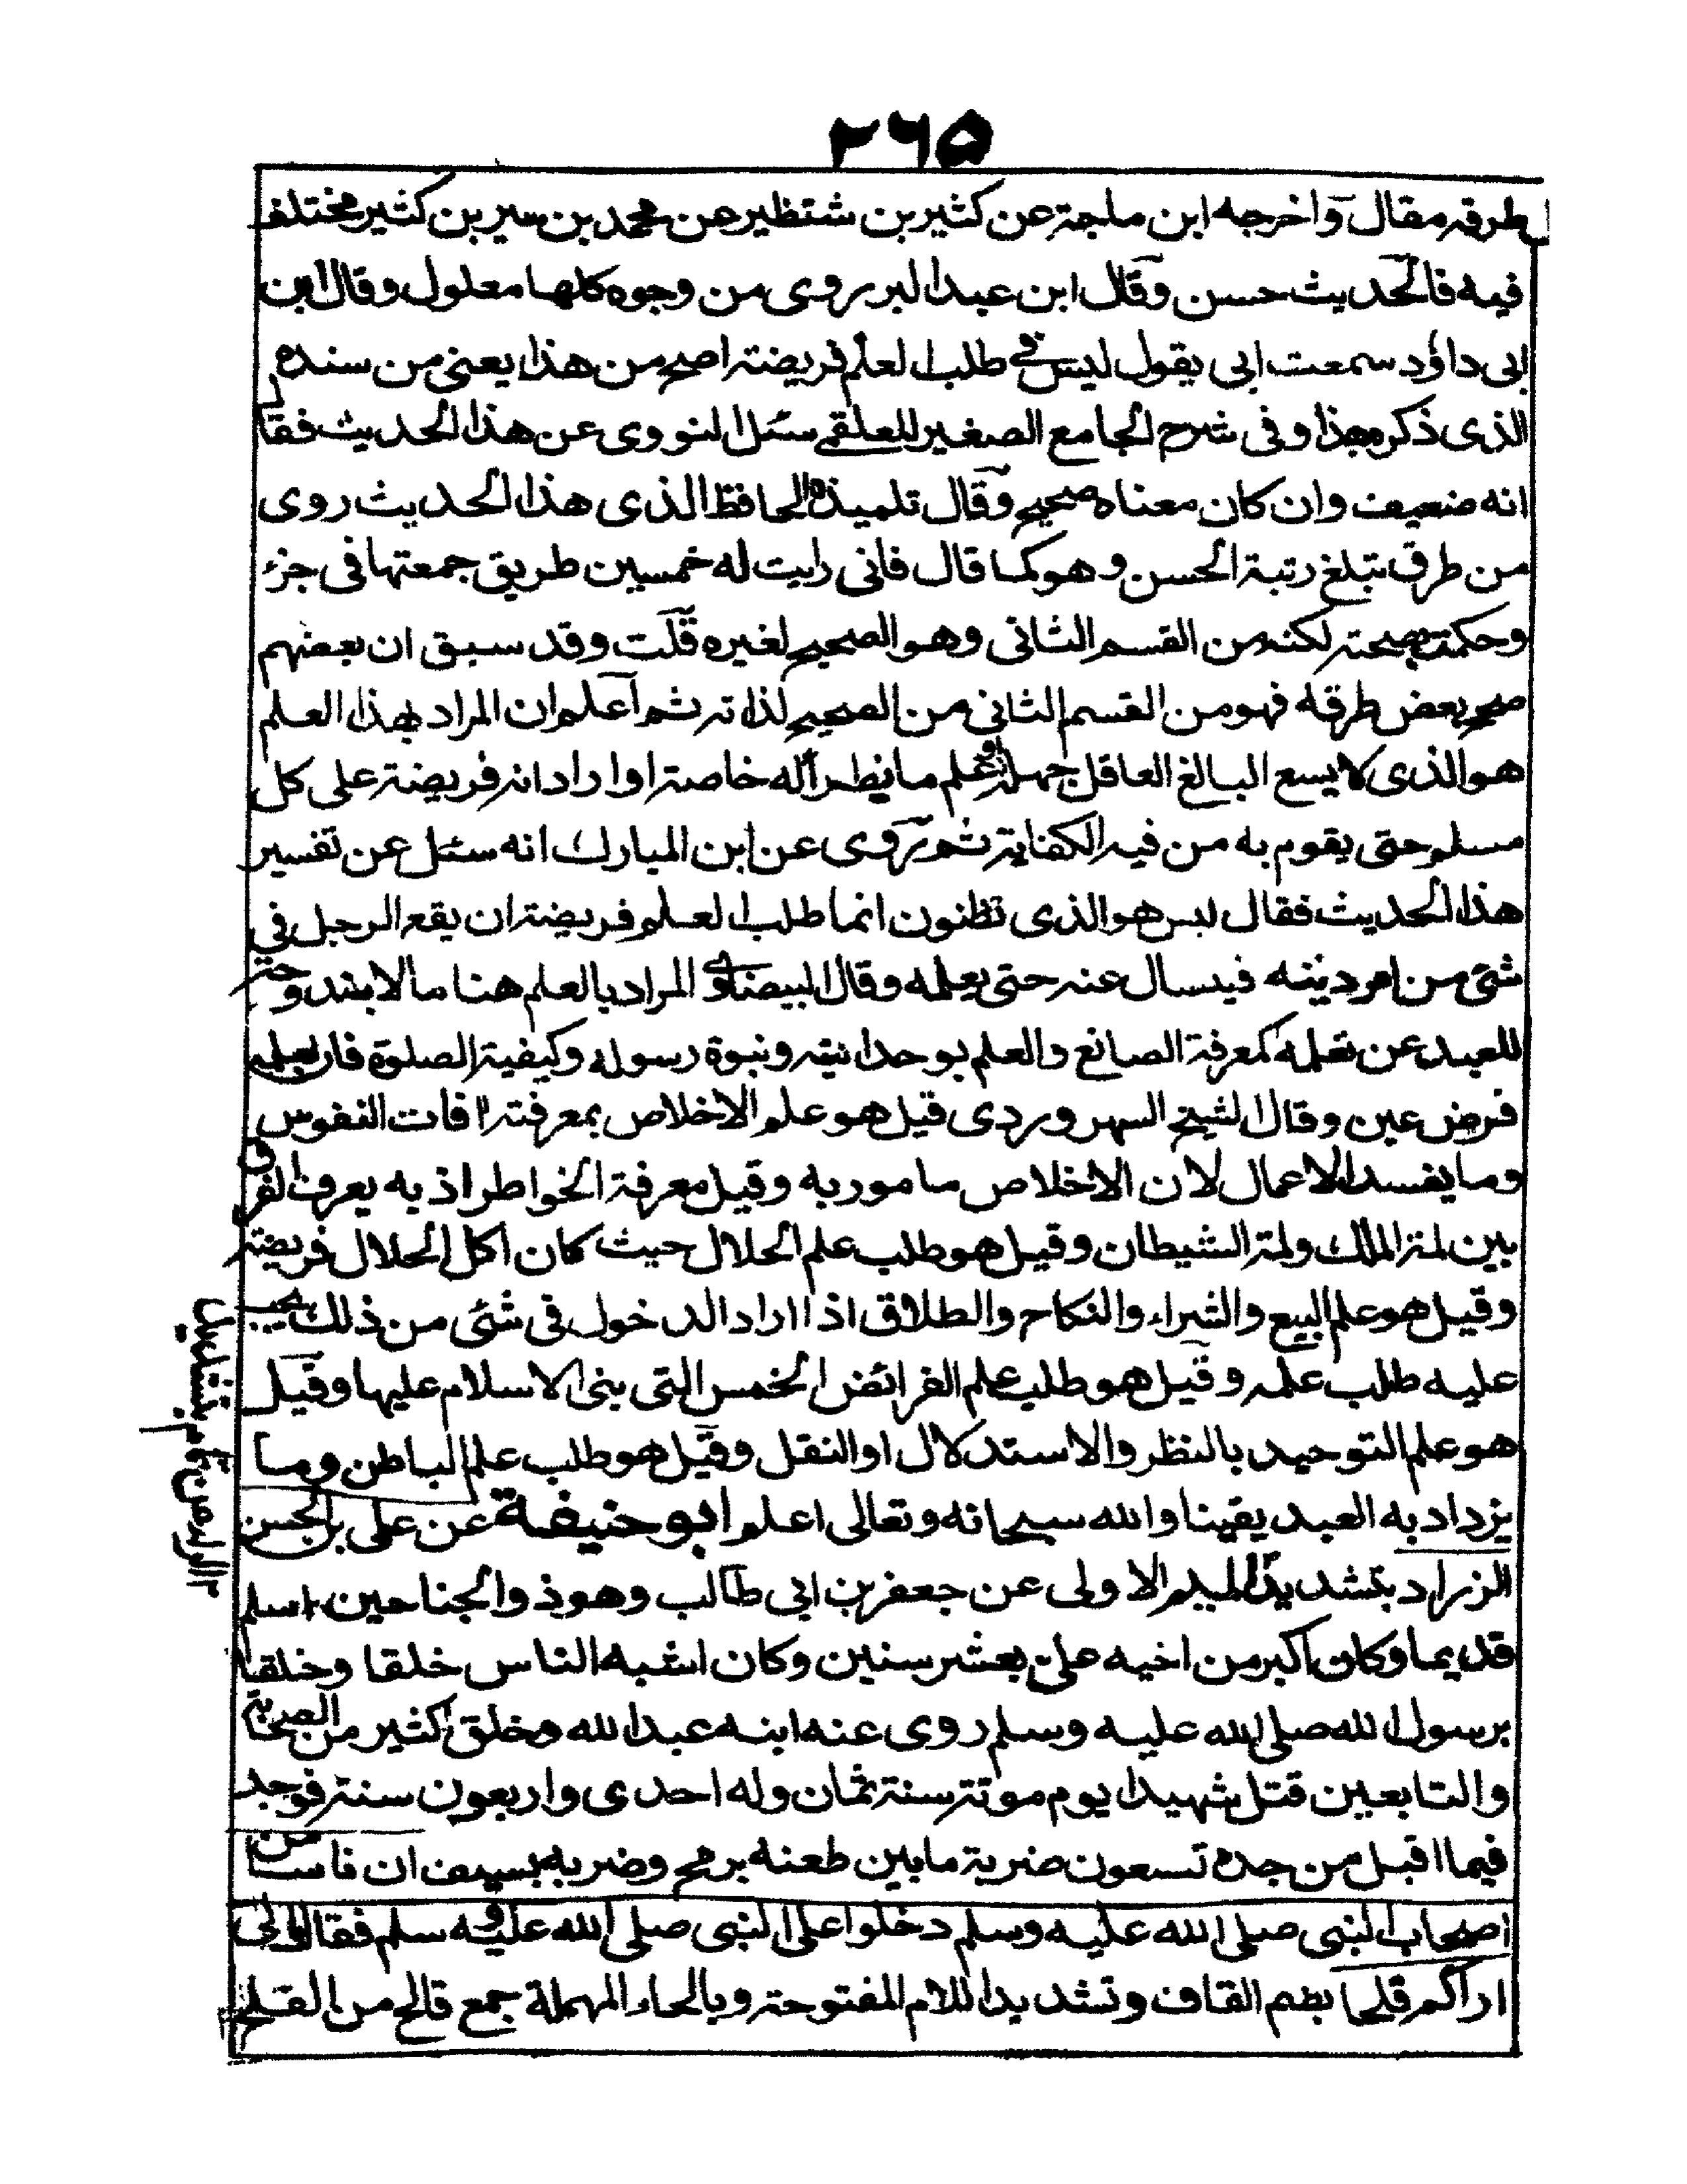 ۲۶۵
طرقه مقال واخرجه ابن ماجة عن كثير بن شنظير عن محمد بن سيربن كثير مختلف
فيه فالحديث حسن وقال ابن عبد البر روى من وجوه كلها معلول وقال ابن
ابى داؤد سمعت ابى يقول ليس فى طلب العلم فريضة اصح من هذا يعنى من سنده
الذى ذكره هذا وفى شرح الجامع الصغير للعلقمى سئل النووى عن هذا الحديث فقال
انه ضعيف وان كان معناه صحيح وقال تلميذه الحافظ الذى هذا الحديث روى
من طرق تبلغ رتبة الحسن وهو كما قال فانى رايت له خمسين طريق جمعتها فى جزء
وحكمت بصحته لكنه من القسم الثانى وهو الصحيح لغيره قلت وقد سبق ان بعضهم
صحح بعض طرقه فهو من القسم الثانى من الصحيح لذاته ثم اعلم ان المراد بهذا العلم
هو الذى لا يسع البالغ العاقل جهله او علم ما يطرأ له خاصة او اراد انه فريضة على كل
مسلم حتى يقوم به من فيه الكفاية ثم روى عن ابن المبارك انه سئل عن تفسير
هذا الحديث فقال ليس هو الذى تظنون انما طلب العلم فريضة ان يقع الرجل فى
شئ من امر دينه فيسال عنه حتى يعلمه وقال البيضاوى المراد بالعلم هنا مالا مندوحة
للعبد عن تعلمه كمعرفة الصانع والعلم بوحدانيته ونبوة رسوله وكيفية الصلوة فان تعلمه
فرض عين وقال الشيخ السهروردى قيل هو علم الاخلاص بمعرفته افات النفوس
وما يفسد الاعمال لان الاخلاص مامور به وقيل معرفة الخواطر اذ به يعرف الفرق
بين لمة الملك ولمة الشيطان وقيل هو طلب علم الحلال حيث كان اكل الحلال فريضة
وقيل هو علم البيع والشراء والنكاح والطلاق اذا اراد الدخول فى شئى من ذلك يجب
عليه طلب علمه وقيل هو طلب علم الفرائض الخمس التى بنى الاسلام عليها وقيل
هو علم التوحيد بالنظر والاستدلال او النقل وقيل هو طلب علم الباطن وما
يزداد به العبد يقينا والله سبحانه وتعالى اعلم ابو حنيفة عن على بن الحسن
الزراد بتشديد الميم الاولى عن جعفر بن ابى طالب وهو ذو الجناحين اسلم
قديما وكان اكبر من اخيه على بعشر سنين وكان اشبه الناس خلقا وخلقا
برسول الله صلى الله عليه وسلم روى عنه ابنه عبد الله وخلق كثير من الصحابة
والتابعين قتل شهيدا يوم موتة سنة ثمان وله احدى واربعون سنة فوجد
فيما اقبل من جسده تسعون ضربة ما بين طعنه برمح وضربه بسيف ان ناسا من
اصحاب النبى صلى الله عليه وسلم دخلوا على النبى صلى الله عليه وسلم فقال مالى
اراكم قلحا بضم القاف وتشديد اللام المفتوحة وبالحاء المهملة جمع قالح من القلح